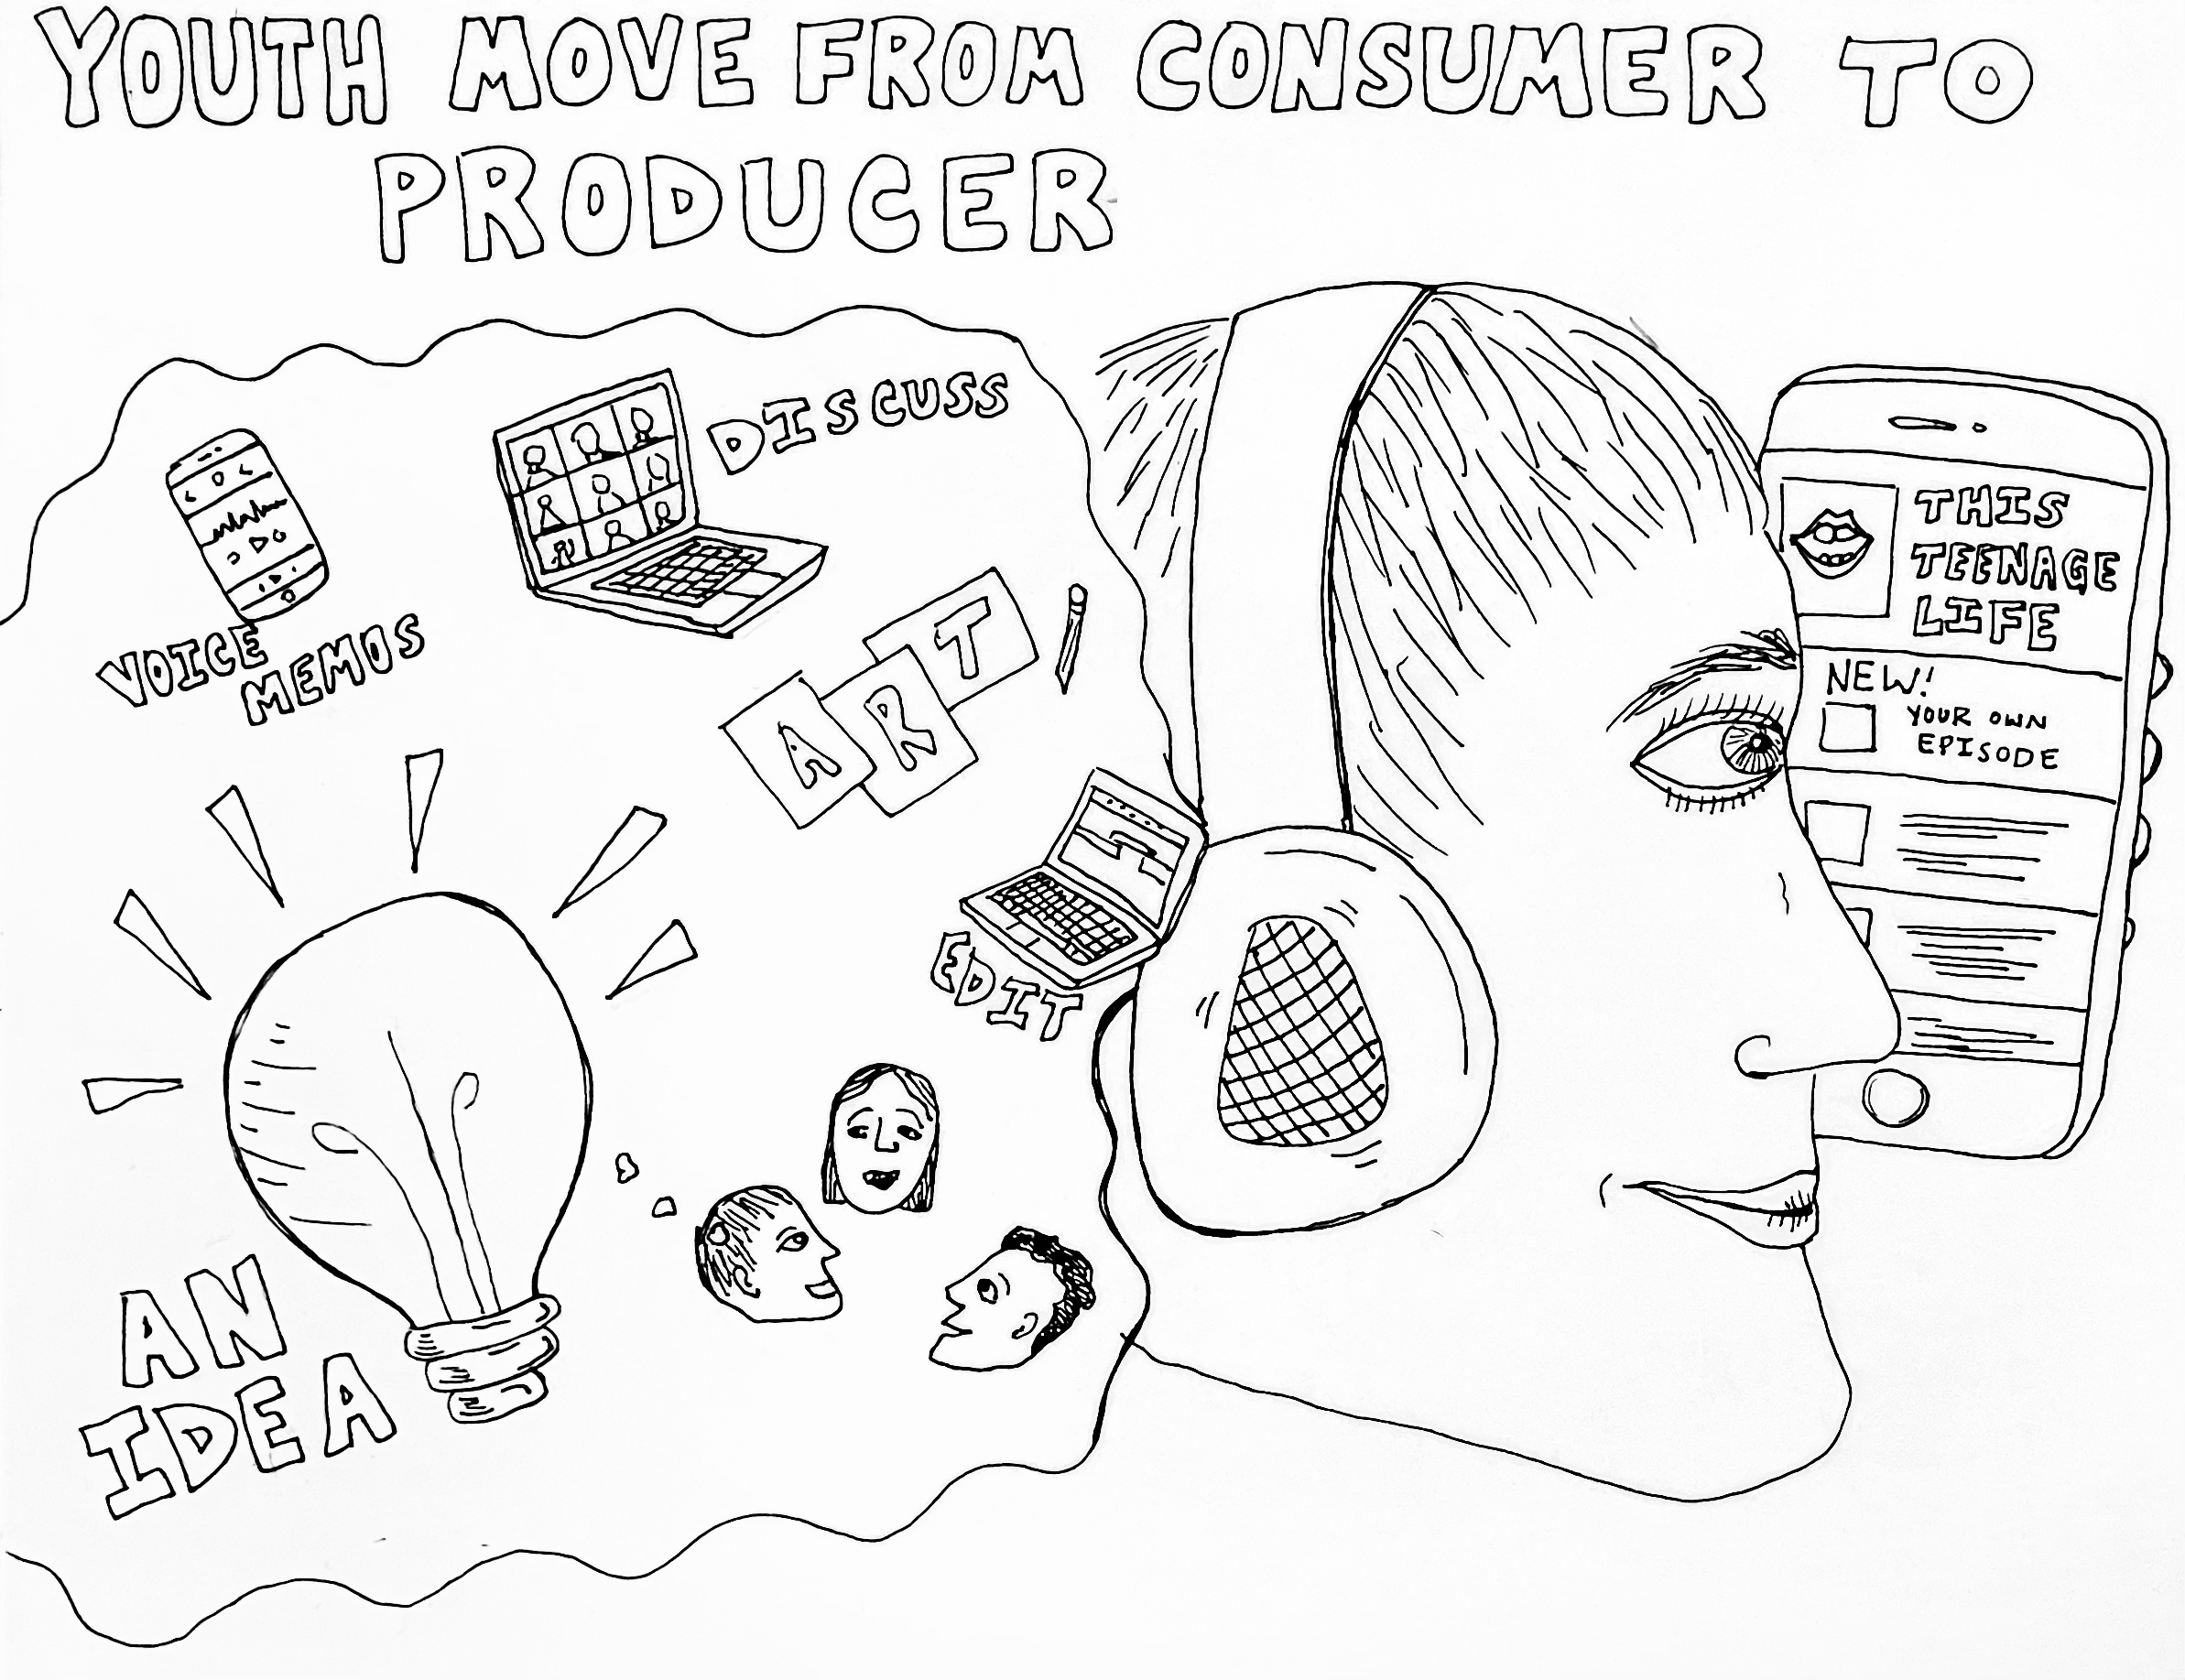 YOUTH MOVE FROM CONSUMER TO
PRODUCER
DISCUSS
VOICE
MEMOS
ART
EDIT
AN
IDEA
THIS
TEENAGE
LIFE
NEW!
YOUR OWN
EPISODE